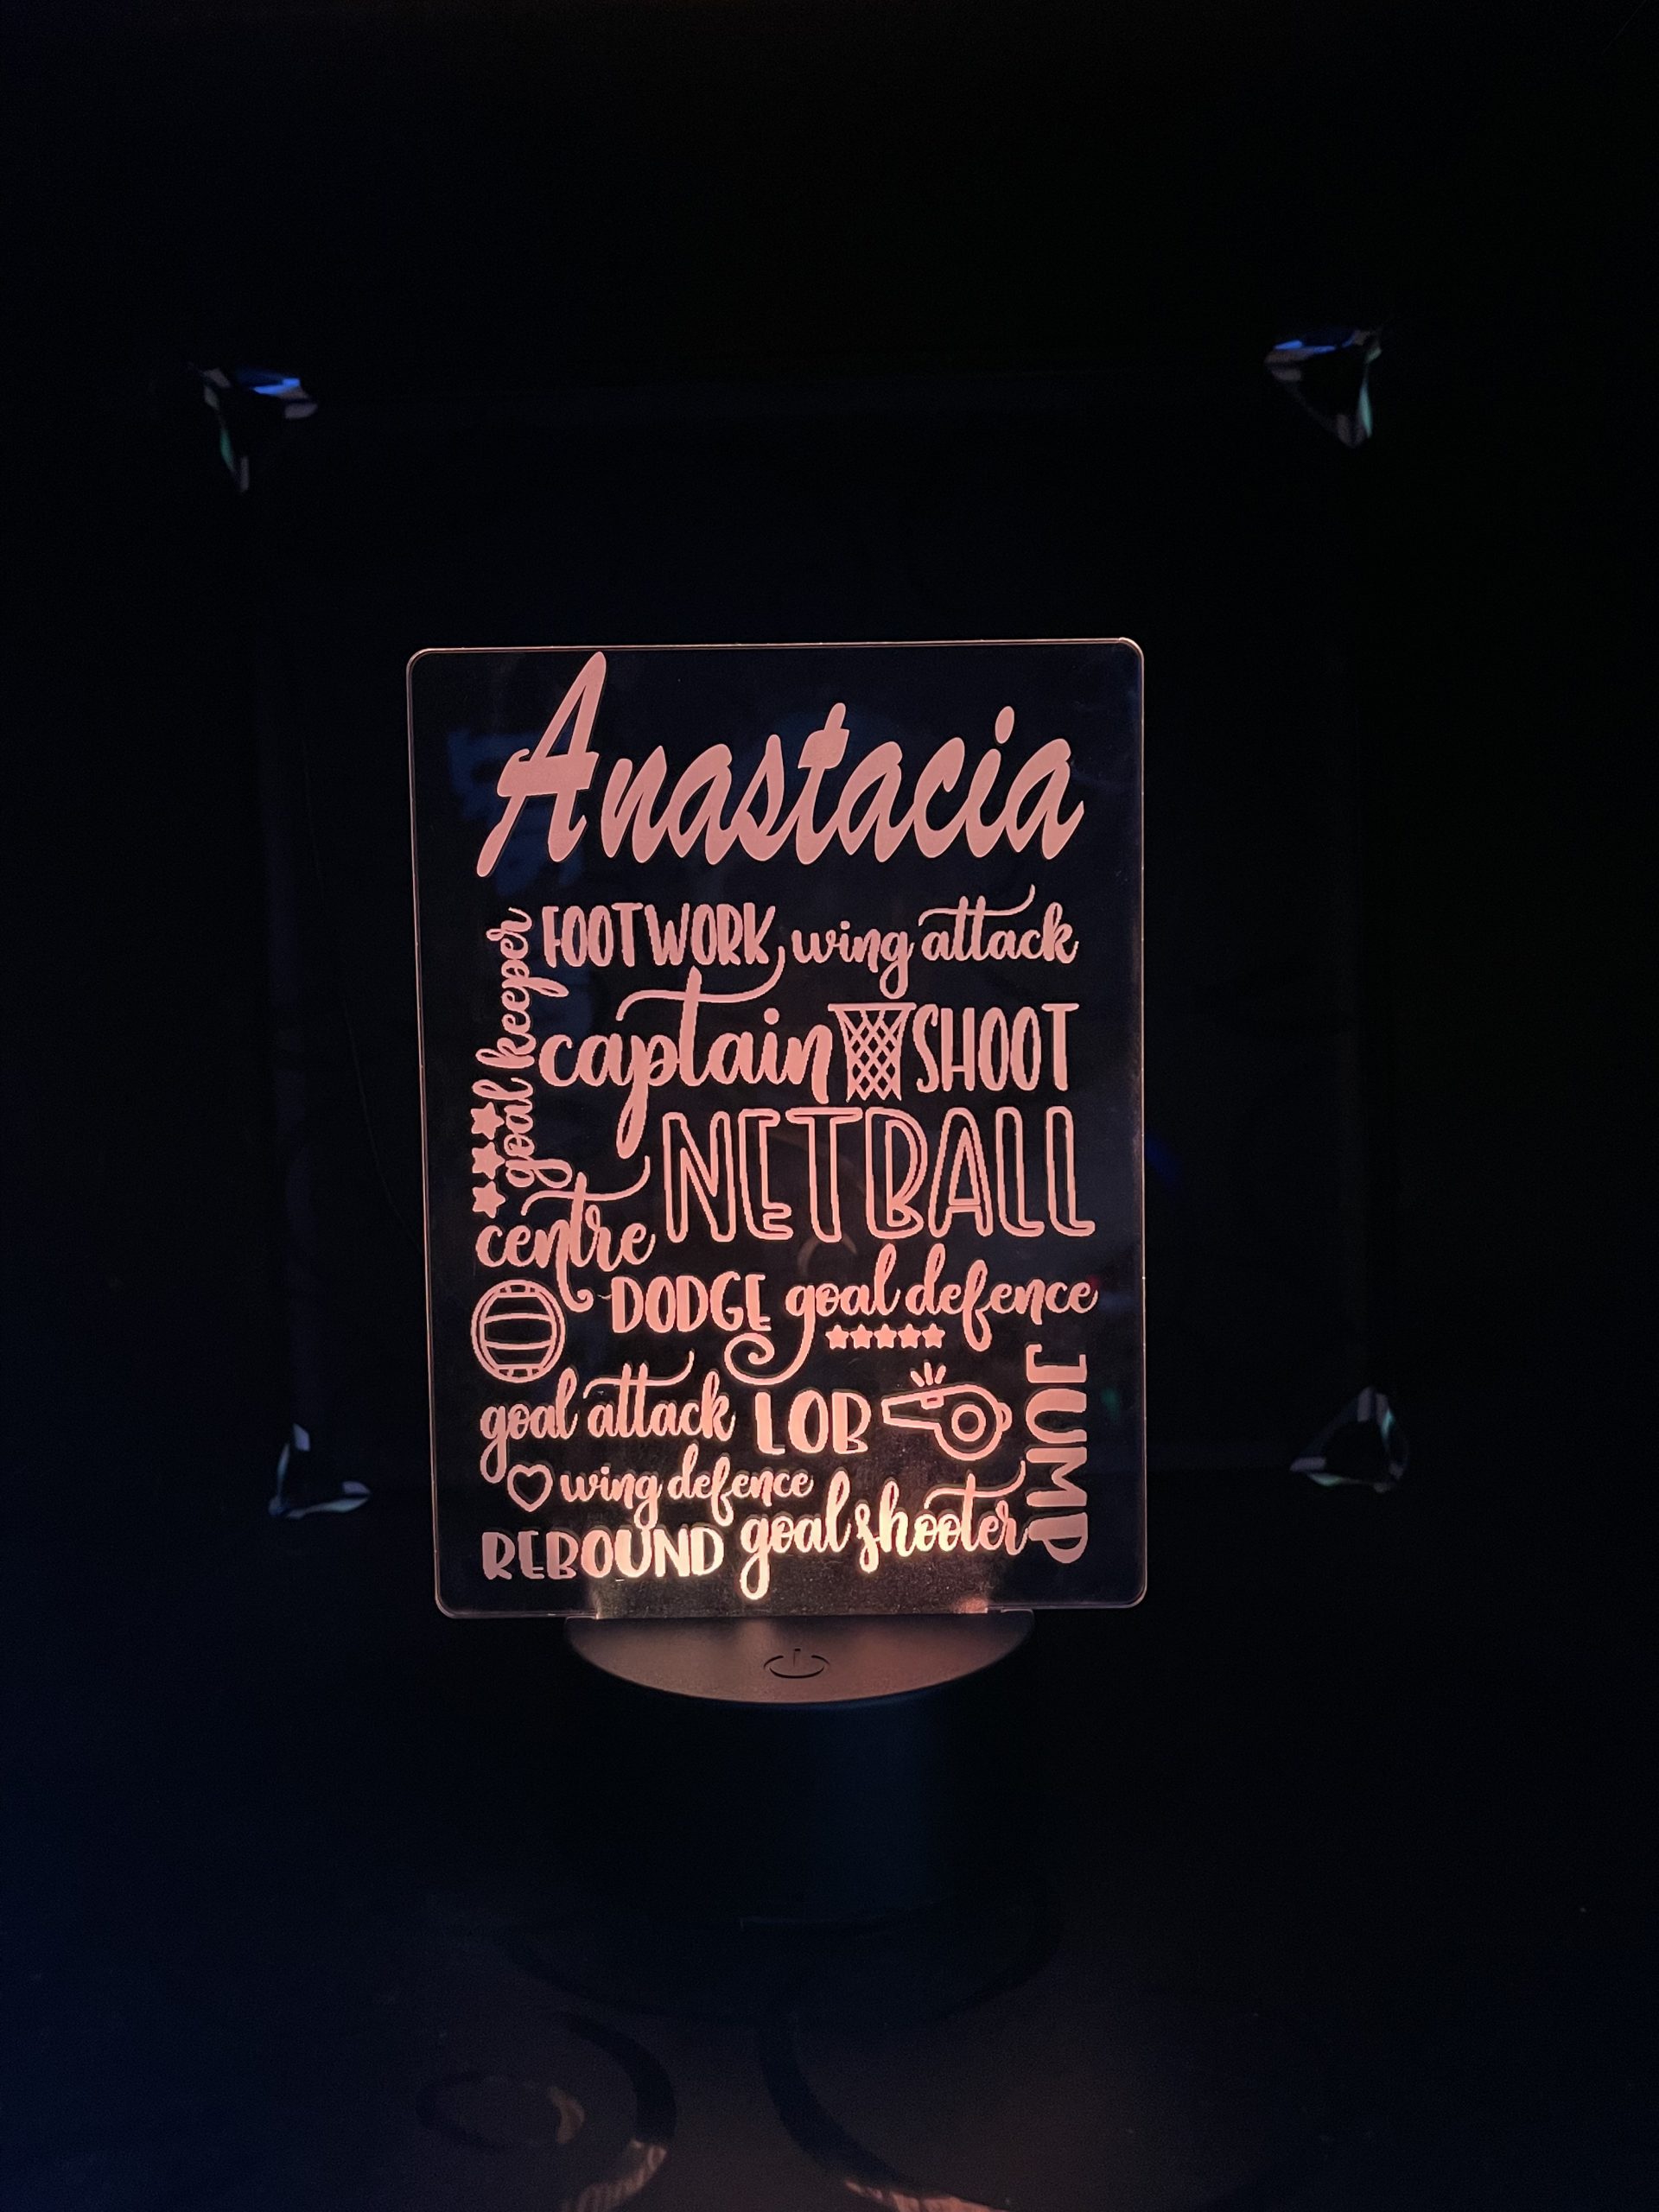 Anastacia
FOOTWORK wing attack
goal keeper
captain SHOOT
NETBALL
centre
DODGE goal defence
JUMP
goal attack LOB
wing defence
REBOUND goal shooter